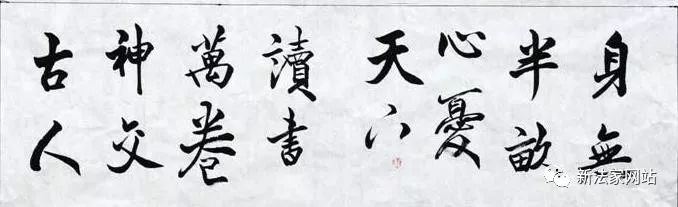 身無
半畝
心憂
天下
讀書
萬卷
神交
古人
新法家网站